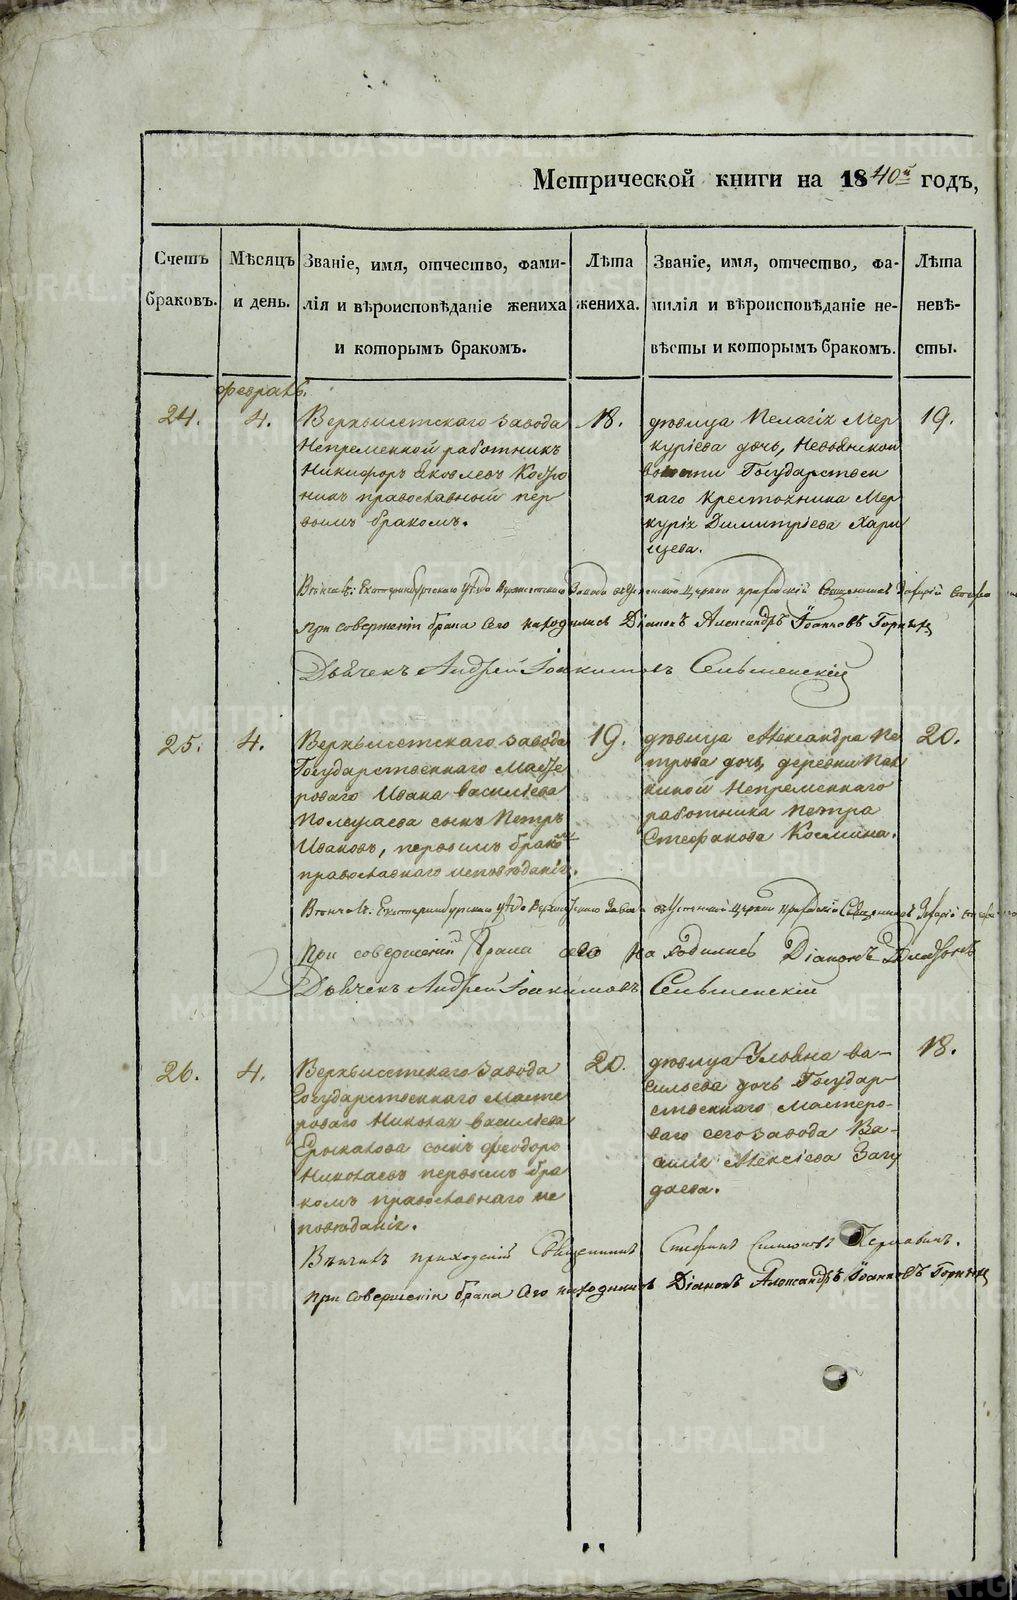 Метрической книги на 1840й годъ,
Счетъ браковъ.
Мѣсяцъ и день.
Званіе, имя, отчество, фами-
лія и вѣроисповѣданіе жениха
и которымъ бракомъ.
Лѣта
жениха.
Званіе, имя, отчество, фа-
милія и вѣроисповѣданіе не-
вѣсты и которымъ бракомъ.
Лѣта
невѣ-
сты.
февраль.
24.
4.
Верхъисетскаго завода
Непременной работникъ
Никифоръ Яковлевъ
никъ православный пер
вымъ бракомъ.
18.
дѣвица Пелагія Мер
куріева дочь, Невьянской
волости Государствен
наго крестьянина Мер
курія Димитріева Хари
цева.
19.
Вѣнчалъ: Екатеринбургскаго Верхисетскаго Завода Успенской Церкви приходскій Священникъ Захарій
При совершеніи брака сего находились Діаконъ Александръ Іоанновъ
Дьячекъ Андрей Іоакимовъ Сельменскій
25.
4.
Верхъисетскаго завода
Государственнаго Масте
роваго Ивана Васильева
сынъ Петръ
Ивановъ, первымъ бракомъ
православнаго исповѣданія.
19.
дѣвица Александра Пе
трова дочь, деревни
киной Непременнаго
работника Петра
Стефанова Космина.
20.
Вѣнчалъ: Екатеринбургскаго Завода Успенской Церкви приходскій Священникъ Захарій
При совершеніи брака сего находились Діаконъ
Дьячекъ Андрей Іоакимовъ Сельменскій
26.
4.
Верхъисетскаго завода
Государственнаго Масте
роваго Николая Васильева
Ерыкалова сынъ Феодоръ
Николаевъ первымъ бра
комъ православнаго ис
повѣданія.
20.
дѣвица Ульяна Ва-
сильева дочь Государ-
ственнаго Мастеро-
ваго сего завода Ва-
силія Алексіева Загу
даева.
18.
Вѣнчалъ приходскій Священникъ Стефанъ
при совершеніи брака сего находились Діаконъ Александръ Іоанновъ
METRIKI.GASO-URAL.RU